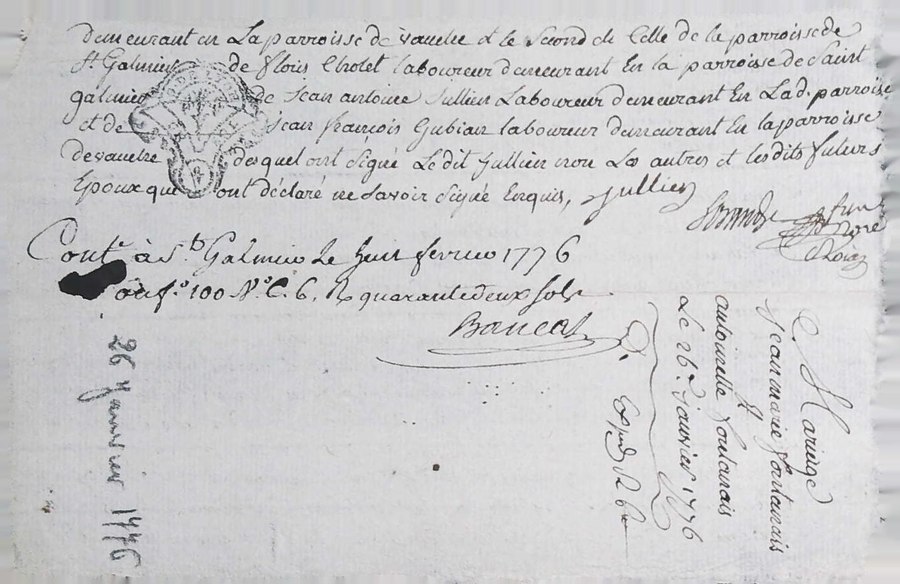 demeurant en La parroisse de vauche et le second de Celle de la parroisse de
St. Galmier de floris Cholet laboureur demeurant En la parroisse de Saint
galmier de Jean antoine Jullien Laboureur demeurant En Lad. parroisse
et de Jean françois Gubian laboureur demeurant En la parroisse
de vauche desquel ont Signé Le dit Jullien non Les autres et lesdits futurs
Epoux qui ont déclaré ne Savoir Signé Enquis, Jullien
Conté à St. Galmier Le huit fevrier 1776
fo. 100 No. C. 6. R quarante deux sols
Bancal
Mariage
Jean marie fontanais
et
antoinette fontanais
Le 26e. Janvier 1776
Expd.
26 Janvier 1776